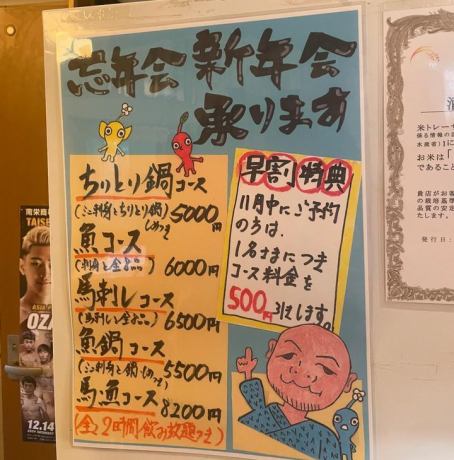 忘年会 新年会
承ります
ちりとり鍋コース
(ミニ刺身とちりとり鍋)
5000円
魚コース
(刺身と全5品)
6000円
馬刺しコース
6500円
魚鍋コース
5500円
馬魚コース
8200円
(全て2時間飲み放題つき)
早割特典
11月中にご予約
の方は、
1名さまにつき
コース料金を
500円引きします。
米トレーサ
係る情報の
水産省)に
お米は「
であること
貴店がお客
の栽培基準
品質の安定
たします。
発行日:
南栄商
TAISE
ASIA
OZA
12.14